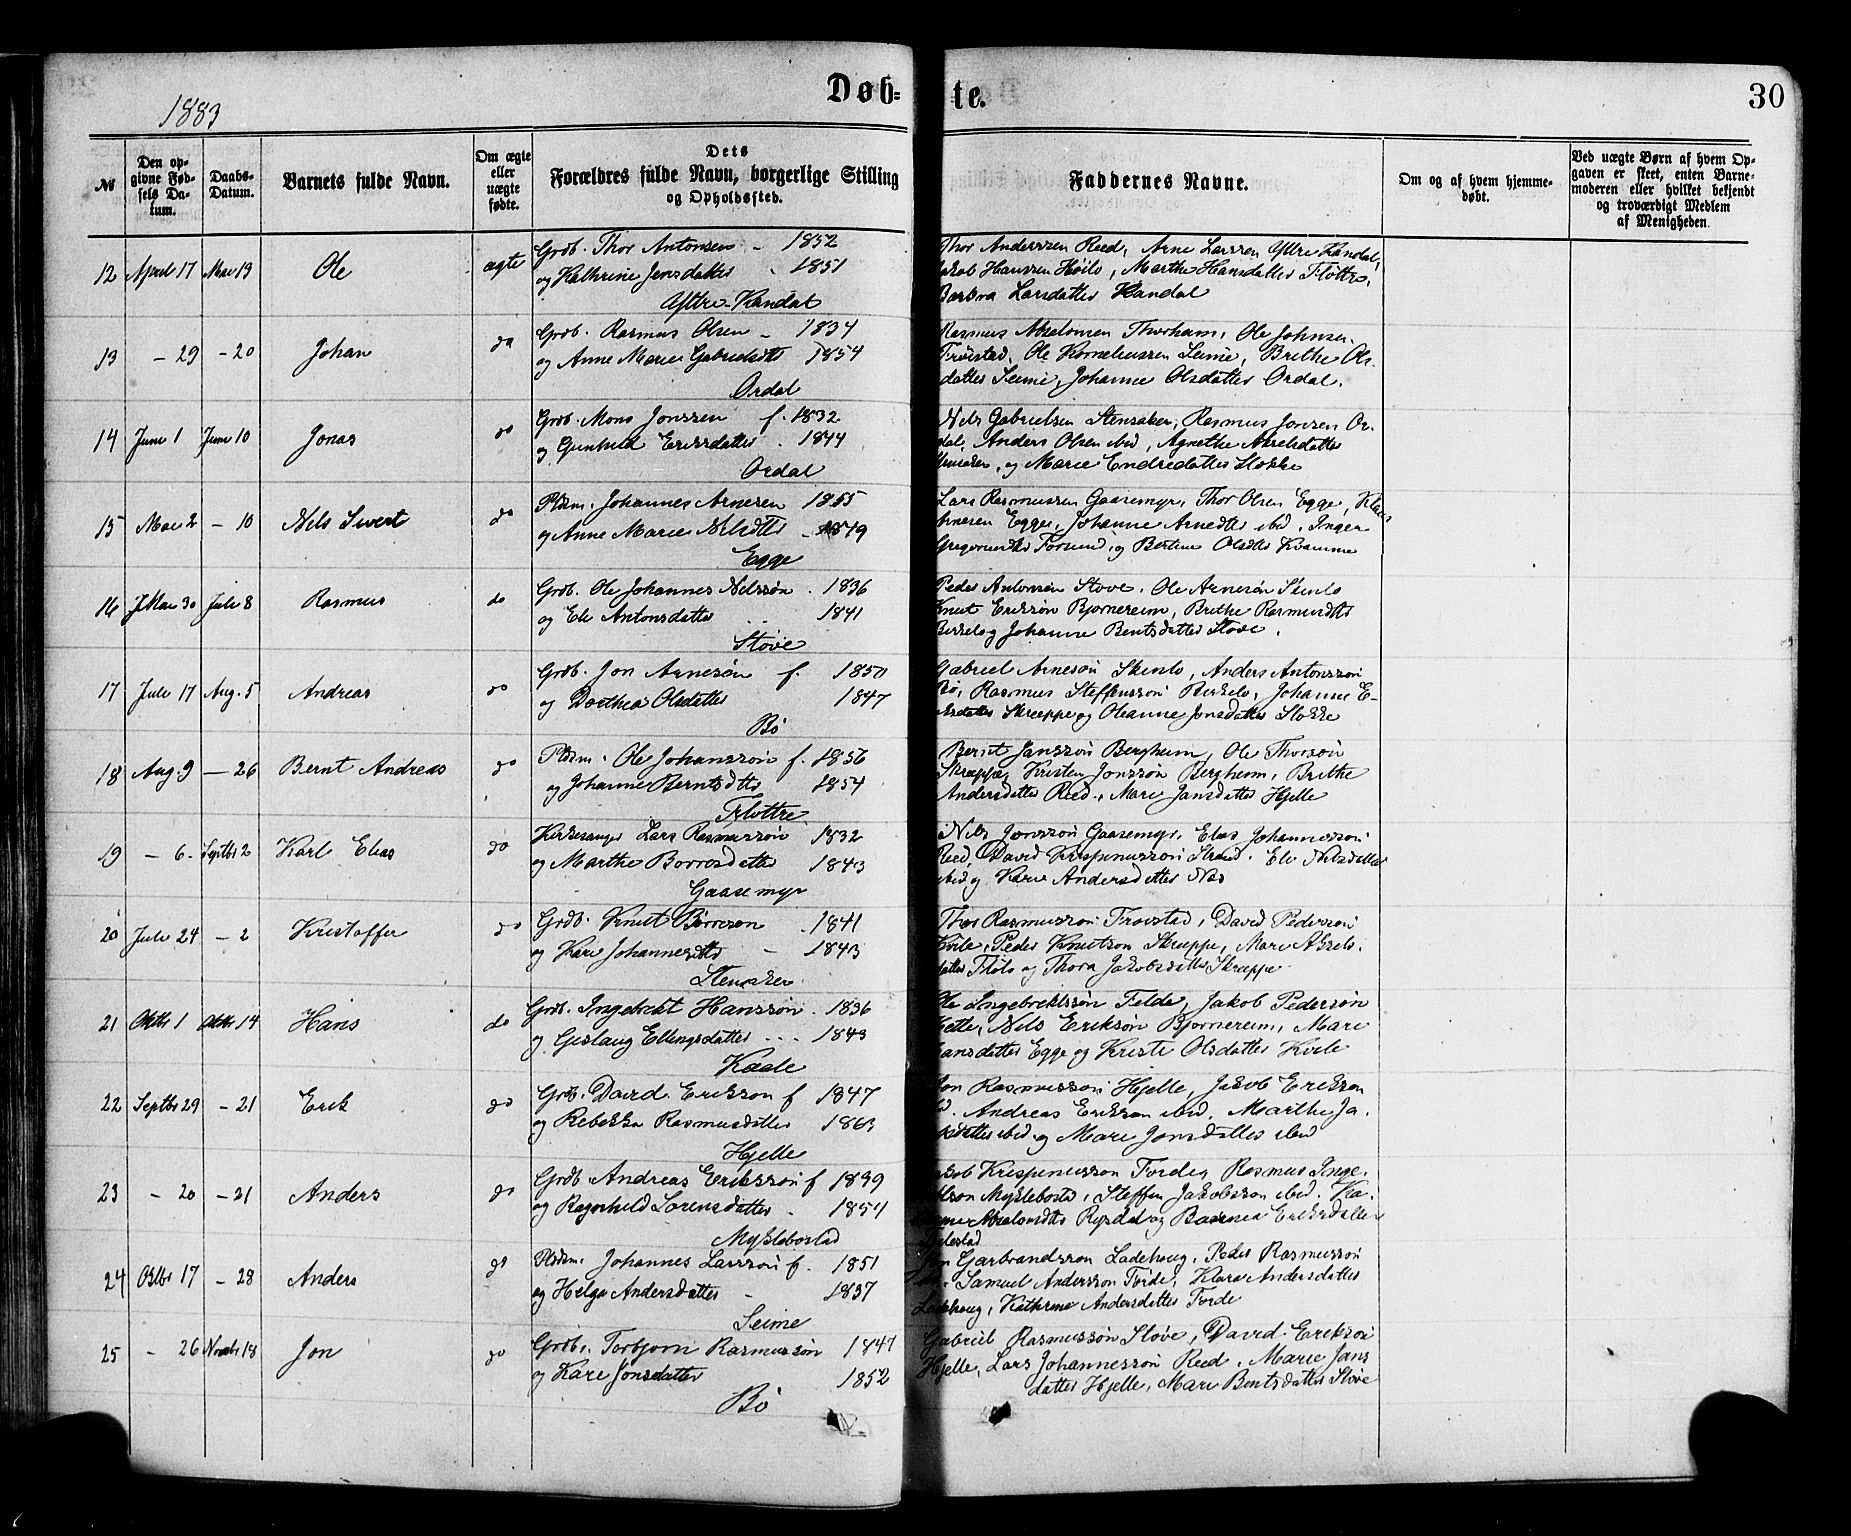 Døb= te. 30
1883
№ | Den opgivne Fødsels Datum. | Daabs-Datum. | Barnets fulde Navn. | Om ægte eller uægte fødte. | Dets Forældres fulde Navn, borgerlige Stilling og Opholdssted. | Faddernes Navne. | Om og af hvem hjemmedøbt. | Ved uægte Børn af hvem Opgaven er skeet, enten Barnemoderen eller hvilket bekjendt og troværdigt Medlem af Menigheden.
12 April 17 Mai 19 Ole ægte Grdb. Thor Antonsen 1852
og Kathrine Jensdatter 1851
Øftre-Kandal
Thor Anderssen Reed, Arne Larssen Øftre Kandal,
Hanssen Høilo, Marthe Hansdatter Fløttre,
Barbra Larsdatter Kandal
13 - 29 - 20 Johan do Grdb. Rasmus Olsen 1834
og Anne Marie Gabrielsdtt 1854
Ordal
Rasmus Absalonsen Thorheim, Ole Johnsen
Trøistad, Ole Korneliussen Seime, Brithe Ols-
datter Seime, Johanne Olsdatter Ordal.
14 Juni 1 Juni 10 Jonas do Grdb. Mons Jonssen f. 1832
og Gunhild Eriksdatter 1844
Ordal
Nils Gabrielsen Stensaker, Rasmus Jonsen Or-
dal, Anders Olsen ibid, Agnethe Akselsdatter
og Marie Endredatter Stokke
15 Mai 2 - 10 Nils Sivert do Pldsm. Johannes Arnesen 1855
og Anne Marie Nilsdtt 1849
Egge
Lars Rasmussen Gaasemyr, Thor Olsen Egge,
Arnesen Egge, Johanne Arnedtr ibid, Inger
og Bertine Olsdtr Kvamme
16 Mai 30 Juli 8 Rasmus do Grdb. Ole Johannes Nilssøn 1836
og Eli Antonsdatter 1841
Støve
Peder Antonsøn Støve, Ole Arnesøn Skinlo
Knut Eriksøn Bjørnereim, Brithe Rasmusdtr
og Johanne Bentsdatter Støve.
17 Juli 17 Aug. 5 Andreas do Grdb. Jon Arnesøn f. 1850
og Dorthea Olsdatter 1847
Bø
Gabriel Arnesøn Skinlo, Anders Antonssøn
Bø, Rasmus Steffenssøn Birkelo, Johanne E-
Skræppe og Oleanne Jonsdatter Stokke
18 Aug. 9 - 26 Bernt Andreas do Pldsm. Ole Johanssøn f. 1856
og Johanne Berntsdtr 1854
Fløttre
Bernt Janssøn Bergheim, Ole Thorsøn
Skræppe, Kristen Jonssøn Bergheim, Brithe
Andersdatter Reed, Mari Jansdatter Hjelle
19 - 6. Septbr 2 Karl Elias do Kirkesanger Lars Rasmussøn 1832
og Marthe Børresdatter 1843
Gaasemyr
Nils Jonssøn Gaasemyr, Elias Johannessøn
Reed, David Krispinussøn Strand, Eli Nilsdatter
ibid og Kari Andersdatter Nas
20 Juli 24 - 2 Kristoffer do Grdb. Knut Børreson 1841
og Kari Johannesdtr 1843
Stensaker
Thor Rasmussøn Trøistad, David Pederssøn
Kvile, Peder Knutsøn Skræppe, Mari Aksels-
datter Fløló og Thora Jakobsdatter Skræppe
21 Oktbr 1 Oktbr 14 Hans do Grdb. Ingebrigt Hanssøn 1836
og Gislaug Ellingsdatter 1843
Kaale
Ole Ingebrektssøn Felde, Jakob Pedersøn
Nils Eriksøn Bjørnereim, Mari
Hansdatter Egge og Kristi Olsdatter Kvile
22 Septbr 29 - 21 Erik do Grdb. David Eriksøn f 1847
og Rebekka Rasmusdatter 1863
Hjelle
Jon Rasmussøn Hjelle, Jakob Eriksøn
Andreas Eriksøn ibid, Marthe Ja-
ibid og Mari Jonsdatter ibid
23 - 20 - 21 Anders do Grdb. Andreas Erikssøn f 1849
og Ragnhild Lorensdatter 1854
Myklebostad
Krispinussøn Førde, Rasmus Inge-
Myklebostad, Steffen Jakobssøn ibid. Ka-
Absalonsdtr Rysdal og Eriksdatter
24 Oktbr 17 - 28 Anders do Pldsm. Johannes Larssøn f. 1851
og Helga Andersdatter 1837
Seime
Garbrandssøn Ladehaug, Peder Rasmussøn
Samuel Anderssøn Førde, Klara Andersdatter
Ladehaug, Kathrine Andersdatter Førde
25 - 26 Novbr 18 Jon do Grdb. Torbjørn Rasmussøn 1847
og Kari Jonsdatter 1852
Bø
Gabriel Rasmussøn Støve, David Eriksøn
Hjelle, Lars Johannessøn Reed, Marie Jans
datter Hjelle, Mari Bentsdatter Støve